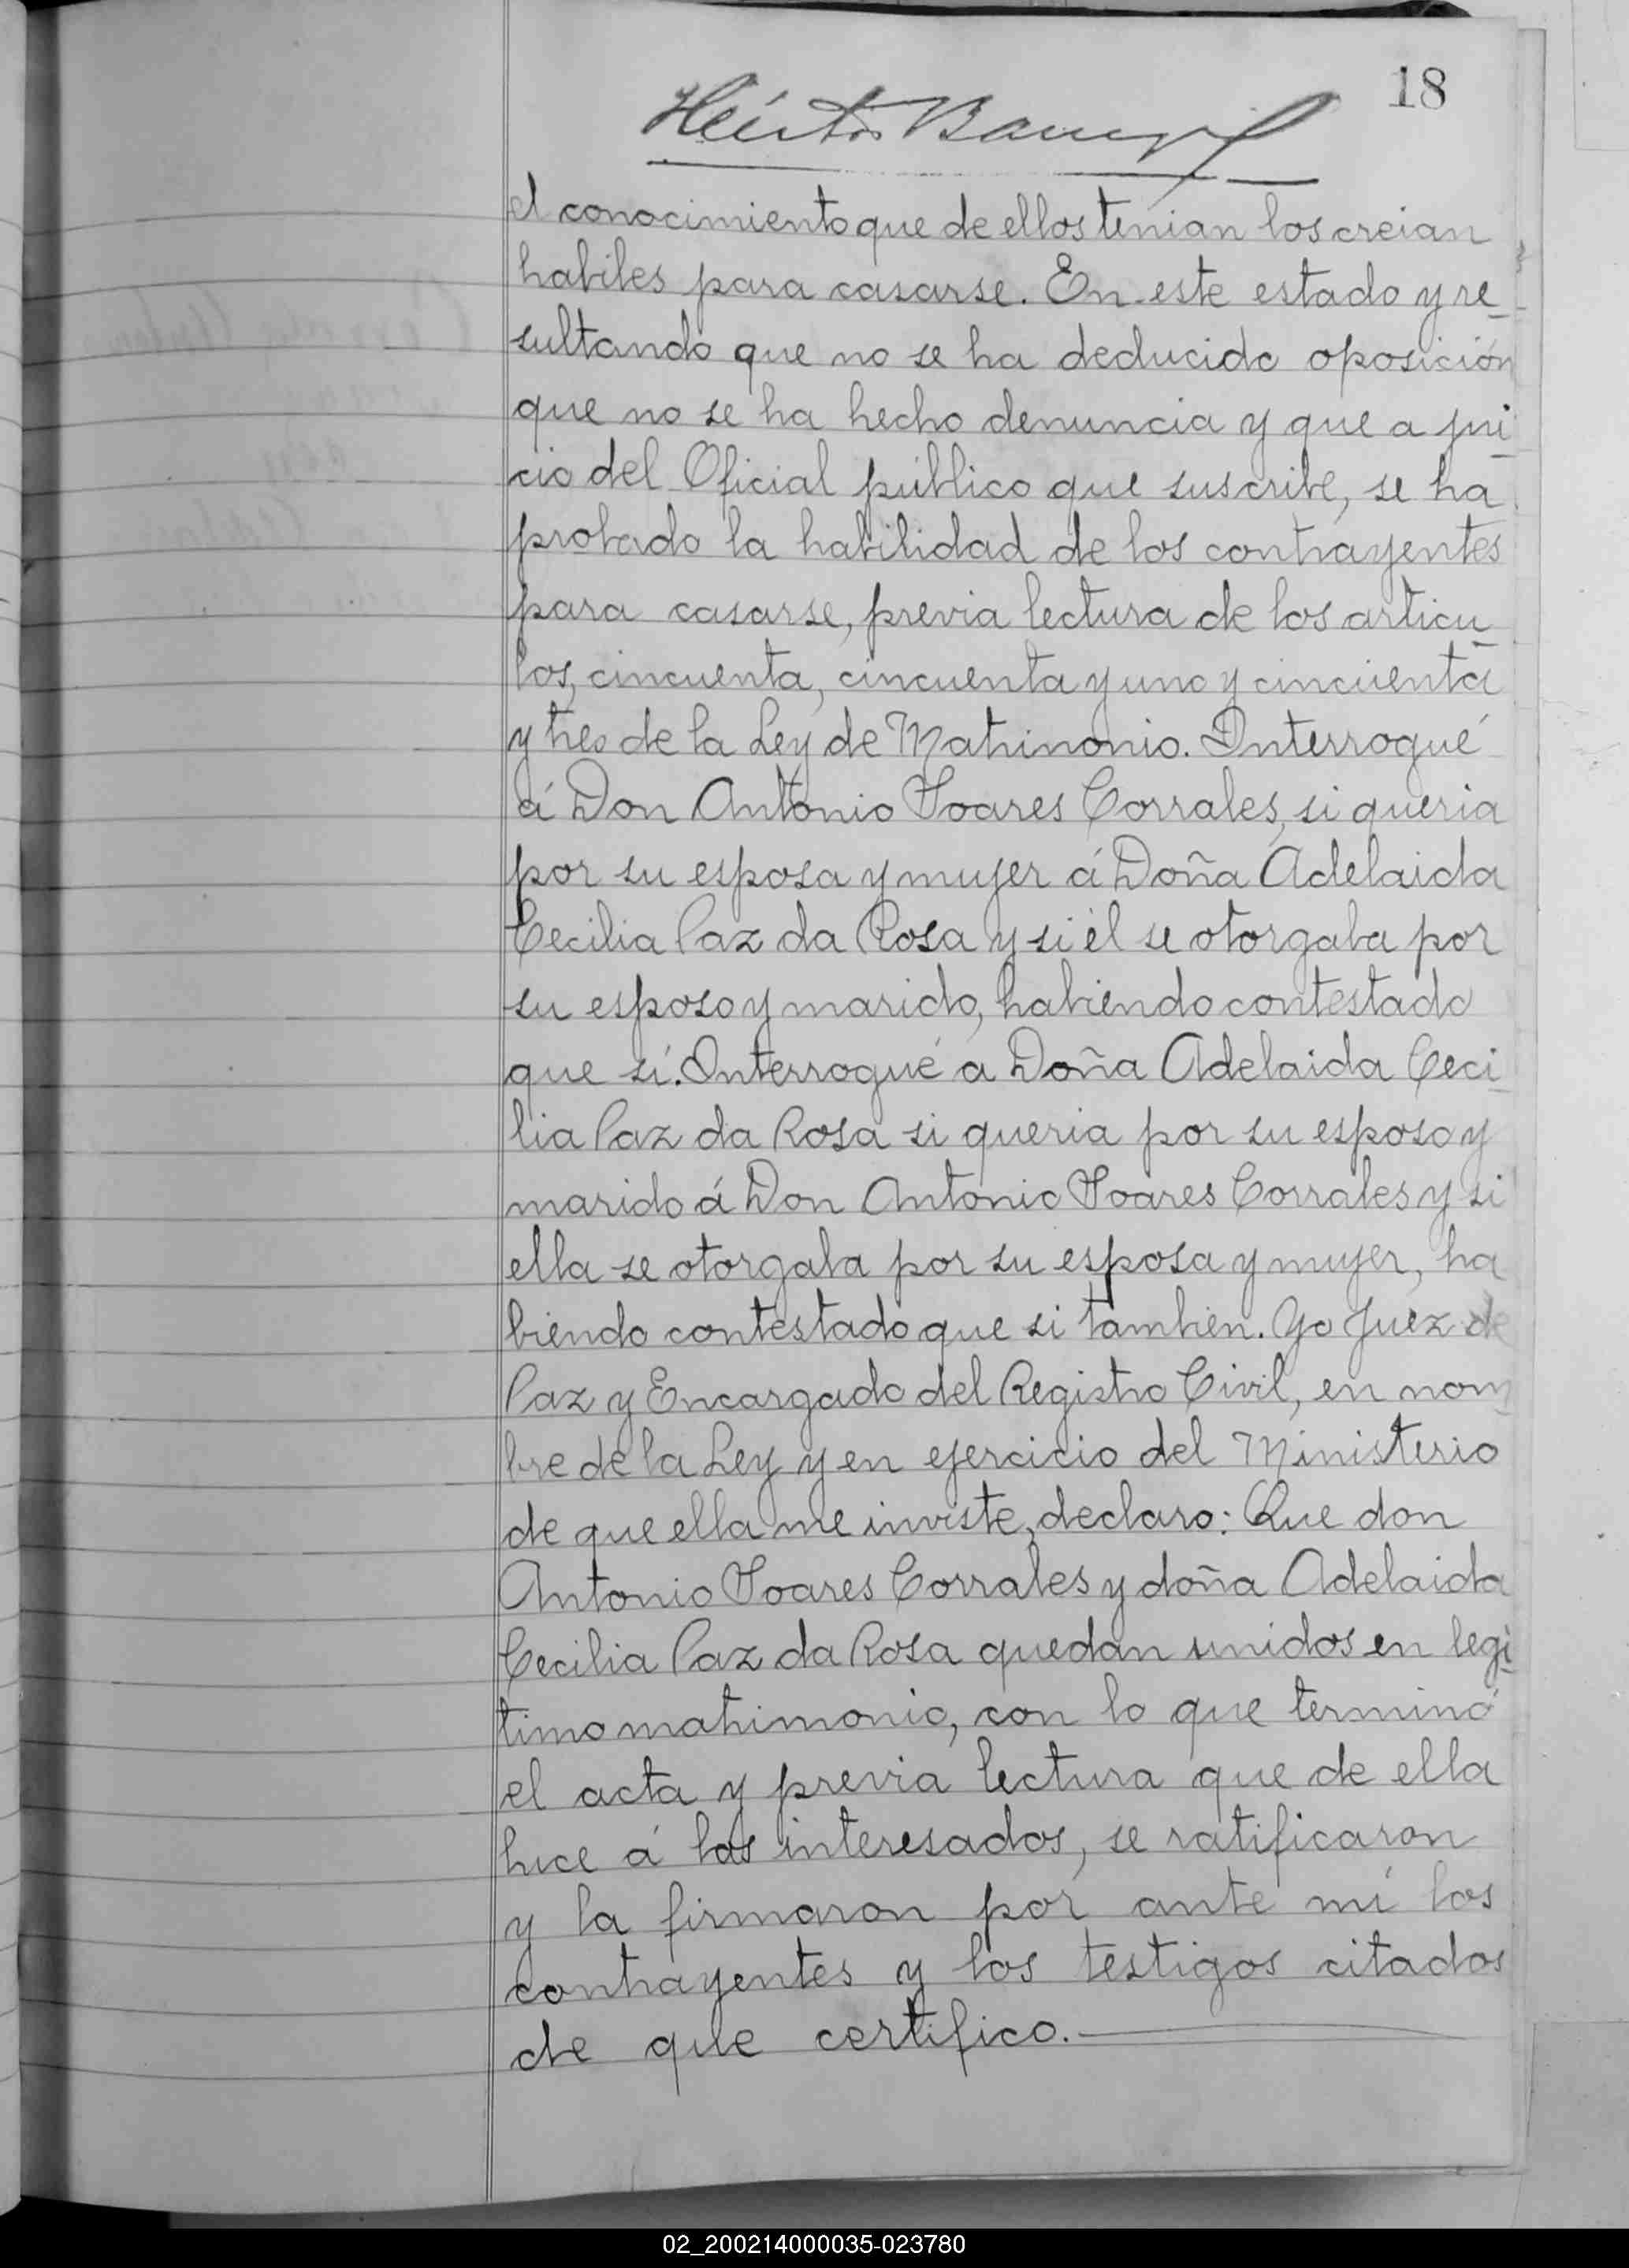 18
Héctor
el conocimiento que de ellos tenian los creian
habiles para casarse. En este estado y re_
sultando que no se ha deducido oposición
que no se ha hecho denuncia y que a jui_
cio del Oficial público que suscribe, se ha
probado la habilidad de los contrayentes
para casarse, previa lectura de los articu_
los, cincuenta, cincuenta y uno y cincuenta
y tres de la Ley de Matrimonio. Interrogué
á Don Antonio Soares Corrales, si queria
por su esposa y mujer á Doña Adelaida
Cecilia Paz da Rosa y si él se otorgaba por
su esposo y marido, habiendo contestado
que sí. Interrogué a Doña Adelaida Ceci_
lia Paz da Rosa si queria por su esposo y
marido á Don Antonio Soares Corrales y si
ella se otorgaba por su esposa y mujer, ha
biendo contestado que si tambien. Yo Juez de
Paz y Encargado del Registro Civil, en nom_
bre de la Ley y en ejercicio del Ministerio
de que ella me inviste, declaro: Que don
Antonio Soares Corrales y doña Adelaida
Cecilia Paz da Rosa quedan unidos en legi_
timo matrimonio, con lo que terminó
el acta y previa lectura que de ella
hice á los interesados, se ratificaron
y la firmaron por ante mí los
contrayentes y los testigos citados
de que certifico.
02_200214000035-023780